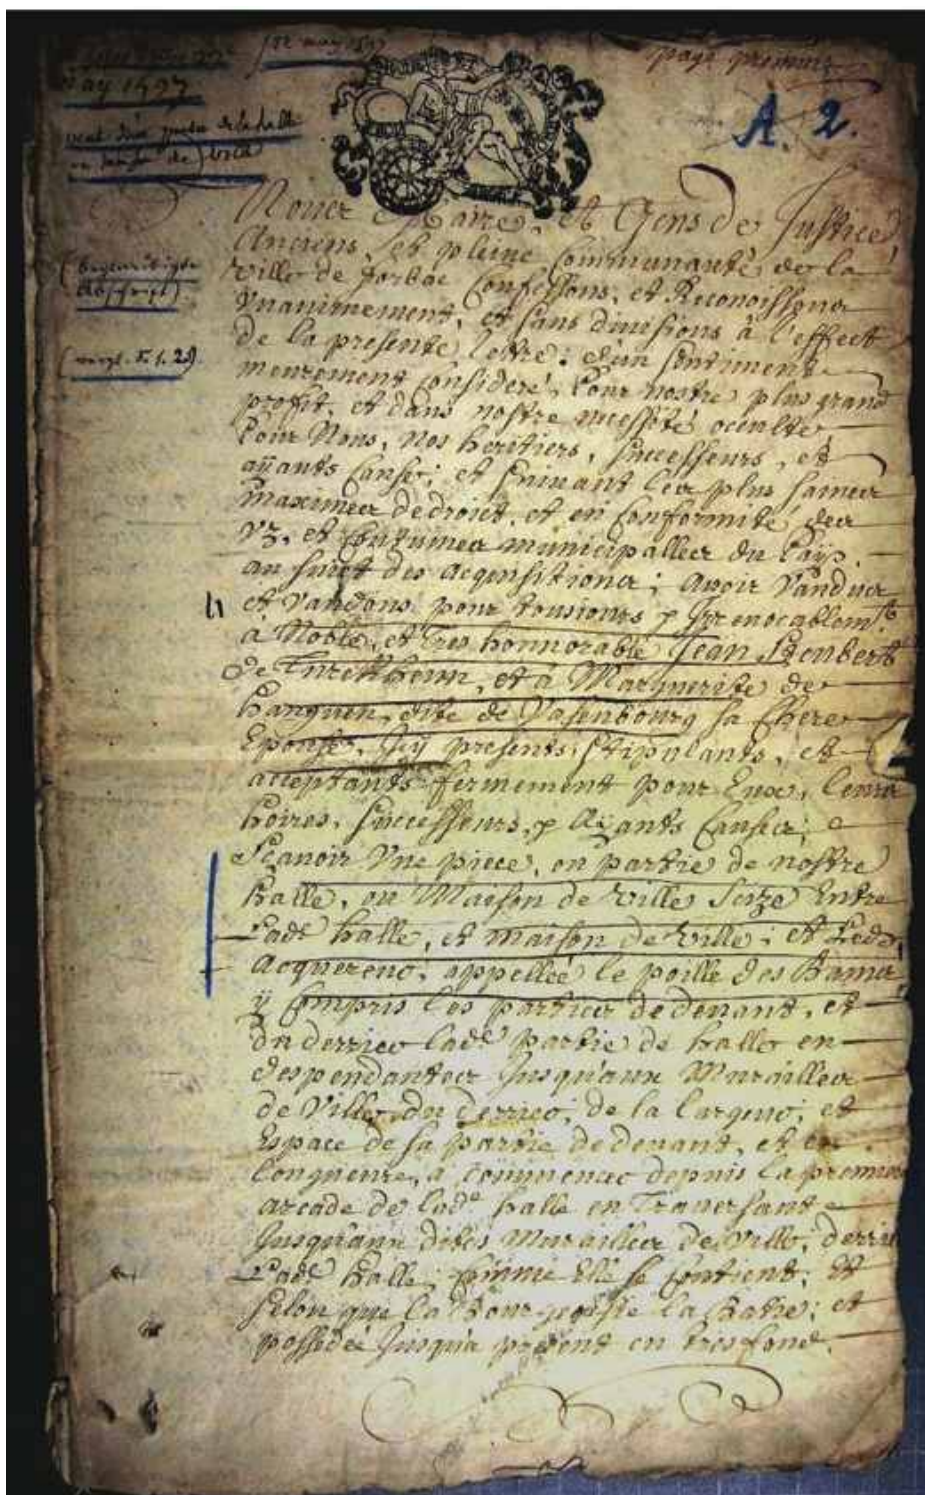 12 may 1597
page premiere
may 1597
A. 2.
vent d'une partie de la halle
ou maison de ville
Nouer Maire, et Gens de Justice,
Anciens, et pleine Communauté de la
ville de forbac Confessons, et Reconoissons
Vnanimement, et sans diuisions à l'effect
de la presente lettre: d'un sentiment
meurement Consideré, Pour nostre plus grand
profit, et dans nostre necessité occulte
Pour Nous, nos heritiers, successeurs, et
aÿants Cause; et suiuant les plus saines
maximes de droict, et en Conformité des
Vz, et Coutumes municipalles du Païs
au suiet des acquisitions; auoir Vandues
(beglaubigte
Abschrift)
(vergl. V. 1. 28).
et Vandons pour tousiours & Irreuocablemt.
à Noble, et Tres honnorable Jean
de, et à Marguerite de
dite de Vasenbourg sa Chere
Epouse, Icÿ presents, stipulants, et
acceptants fermement pour Eux, leurs
hoires, successeurs, & Aÿants Causes;
Sçauoir Vne piece, ou partie de nostre
halle, ou Maison de Ville, Size Entre
Lade halle, et maison de Ville; et Leds.
Acquereurs, appellée le poille des
ÿ Compris les parties de deuant, et
du derrier lade partie de halle en
despendantes Jusqu'aux Murailles
de Ville du derrier; de la largeur, et
Espace de sa partie de deuant, et en
Longueure, à Commencer depuis la premier
arcade de lade halle en Trauersant
Jusqu'aux dites Murailles de Ville, derrier
Lade halle; comme Elle se contient; Et
selon que la Bourgeoisie l'a Batie; et
possedée Jusqu'à present en tresfond.